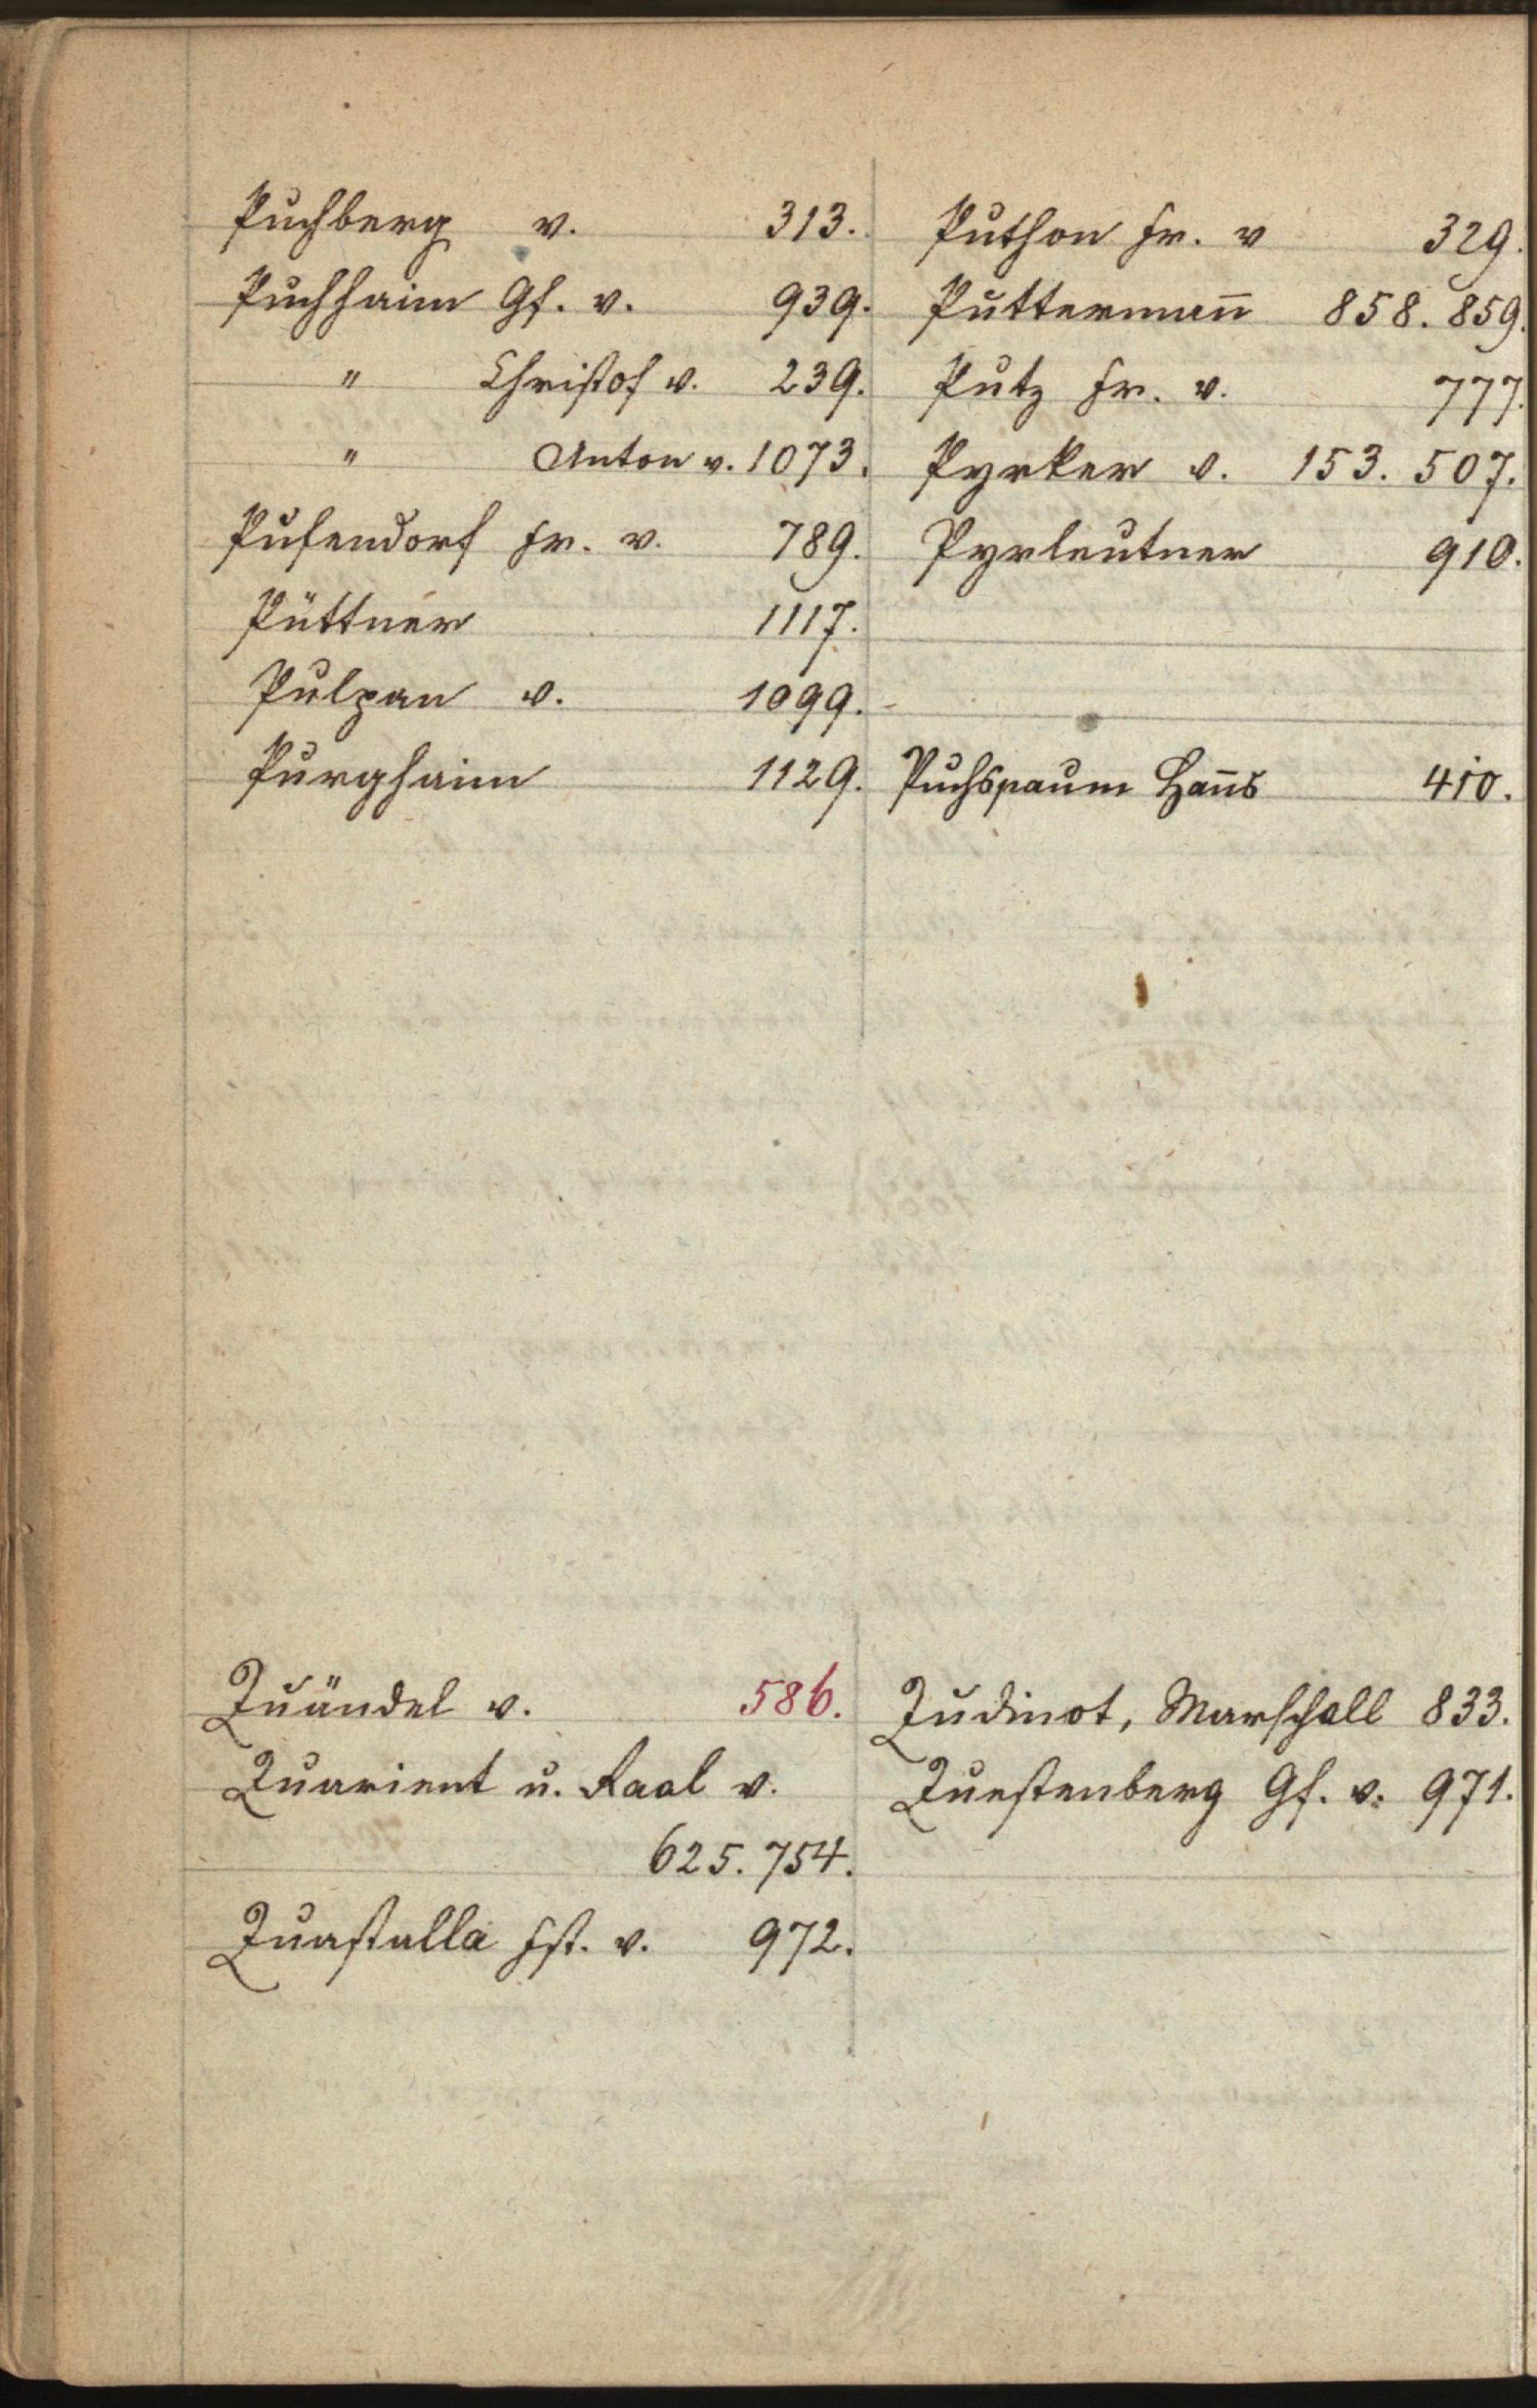 Puchberg v. 313.
Puchhaim Gf. v. 939.
" Christof v. 239.
" Anton v. 1073.
Pufendorf Fr. v. 789.
Püttner 1117.
Pulpan v. 1099.
Purghaim 1129.
Puthon Fr. v 329.
Putterman̄ 858. 859.
Putz Fr. v. 777.
Pyrker v. 153. 507.
Pyrleutner 910.
Puchspaum Han̄s 410.
Quändel v. 586.
Quarient u. Raal v.
625. 754.
Quastalla Fst. v. 972.
Qudinot, Marschall 833.
Questenberg Gf. v. 971.